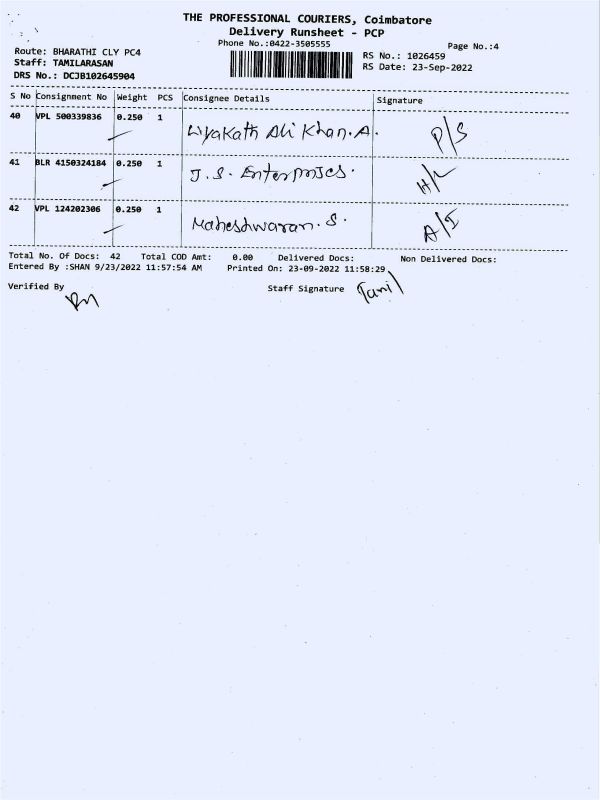 THE PROFESSIONAL COURIERS, Coimbatore
Delivery Runsheet - PCP
Phone No.:0422-3505555
Page No.:4
Route: BHARATHI CLY PC4
RS No.: 1026459
Staff: TAMILARASAN
RS Date: 23-Sep-2022
DRS No.: DCJB102645904
S No Consignment No Weight PCS Consignee Details Signature
40 VPL 500339836 0.250 1 Liyakath Ali Khan. A. P/S
41 BLR 4150324184 0.250 1 J.S. Enterprises. H/L
42 VPL 124202306 0.250 1 Maheshwaran. S. A/I
Total No. Of Docs: 42 Total COD Amt: 0.00 Delivered Docs: Non Delivered Docs:
Entered By :SHAN 9/23/2022 11:57:54 AM Printed On: 23-09-2022 11:58:29
Verified By
Staff Signature Tamil